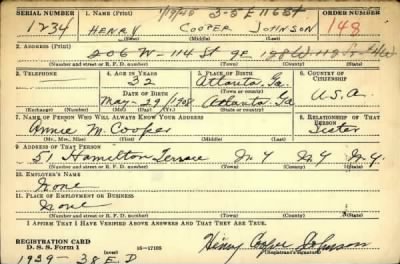 SERIAL NUMBER
1. NAME (Print)
ORDER NUMBER
1234
HENRY COOPER JOHNSON
148
(First) (Middle) (Last)
2. ADDRESS (Print)
206 W-114 St
(Number and street or R. F. D. number) (Town) (County) (State)
3. TELEPHONE
4. AGE IN YEARS
5. PLACE OF BIRTH
6. COUNTRY OF CITIZENSHIP
32
Atlanta, Ga
DATE OF BIRTH
(Town or county)
May-29/1908
Atlanta, Ga
U.S.A
(Exchange) (Number) (Mo.) (Day) (Yr.) (State or country)
7. NAME OF PERSON WHO WILL ALWAYS KNOW YOUR ADDRESS
8. RELATIONSHIP OF THAT PERSON
Annie M. Cooper
Sister
(Mr., Mrs., Miss) (First) (Middle) (Last)
9. ADDRESS OF THAT PERSON
51 Hamilton Terrace N Y N.Y N.Y.
(Number and street or R. F. D. number) (Town) (County) (State)
10. EMPLOYER'S NAME
None
11. PLACE OF EMPLOYMENT OR BUSINESS
None
(Number and street or R. F. D. number) (Town) (County) (State)
I AFFIRM THAT I HAVE VERIFIED ABOVE ANSWERS AND THAT THEY ARE TRUE.
REGISTRATION CARD
D. S. S. Form 1
16-17105
Henry Cooper Johnson
(Registrant's signature)
1939-38 E.D